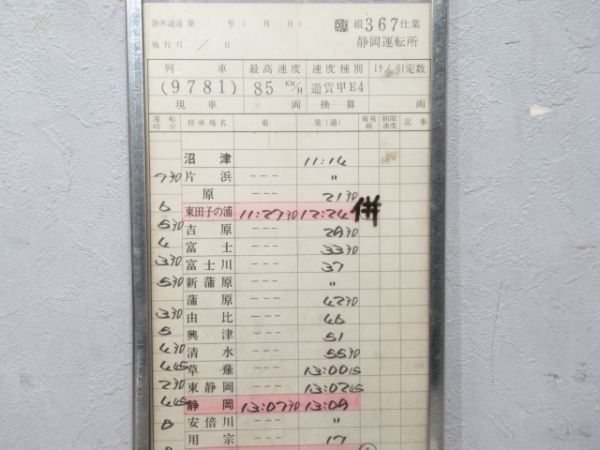 静共通達 第 号 ( 月 日 ) 臨 組 367 仕業
施行月 / 日 静岡運転所
列車 最高速度 速度種別 けん引定数
(9781) 85 KM/H 通貨甲E4
現車 両 換算 両
運転時分 停車場名 着 発(通) 着発線 制限速度 記事
沼津 11:14
730 片浜 --- 〃
原 --- 2130
6 東田子の浦 11:2730 12:24 併
530 吉原 --- 2930
4 富士 --- 3330
330 富士川 --- 37
530 新蒲原 --- 〃
蒲原 --- 4230
330 由比 --- 46
5 興津 --- 51
430 清水 --- 5530
445 草薙 --- 13:0015
230 東静岡 --- 13:0245
445 静岡 13:0730 13:09
安倍川 --- 〃
8 用宗 --- 17